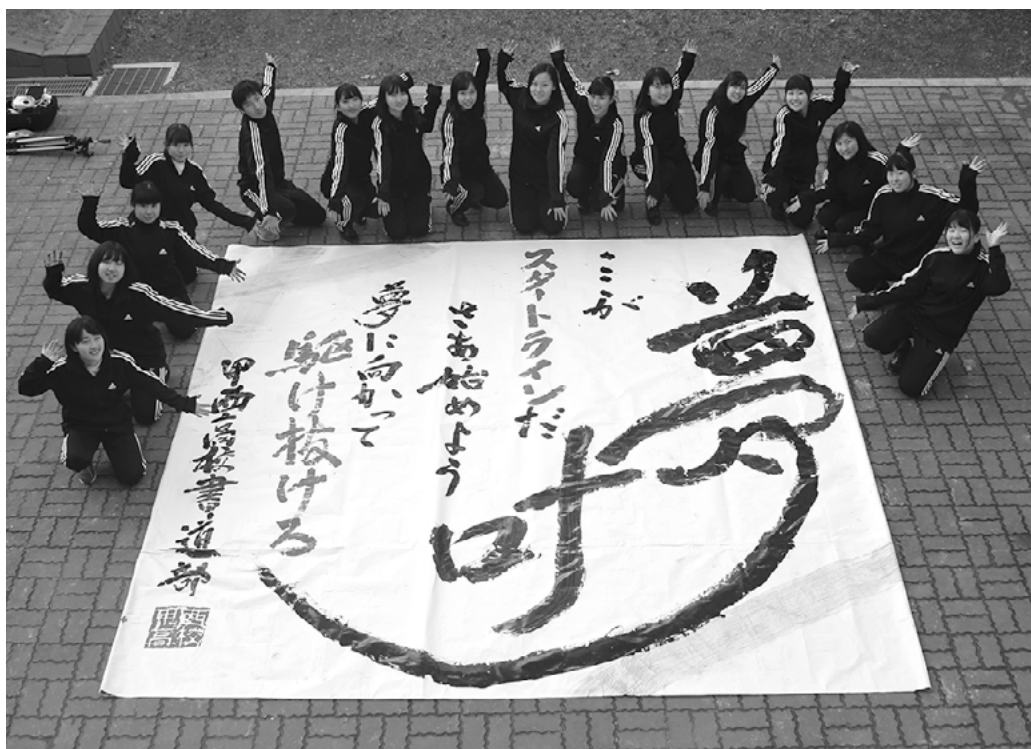 夢
叶
ここが
スタートラインだ
さあ始めよう
夢に向かって
駆け抜ける
甲西高校書道部